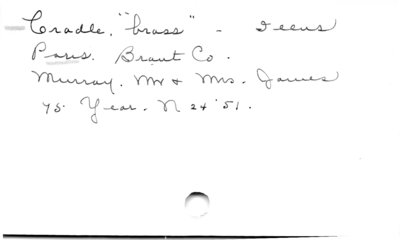 Cradle, "brass" -
Paris. Brant Co.
Murray. Mr & Mrs. James
45 Year. N 24 '51.